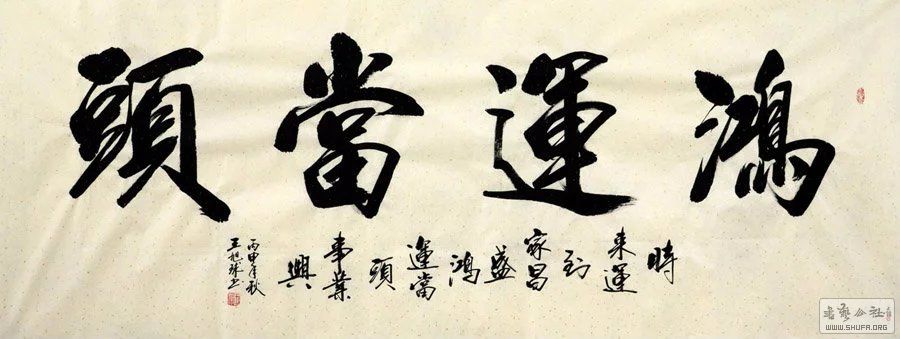 鴻運當頭
時来運到家昌盛鴻運當頭事業興
丙申年秋
王旭球書
书艺公社
WWW.SHUFA.ORG